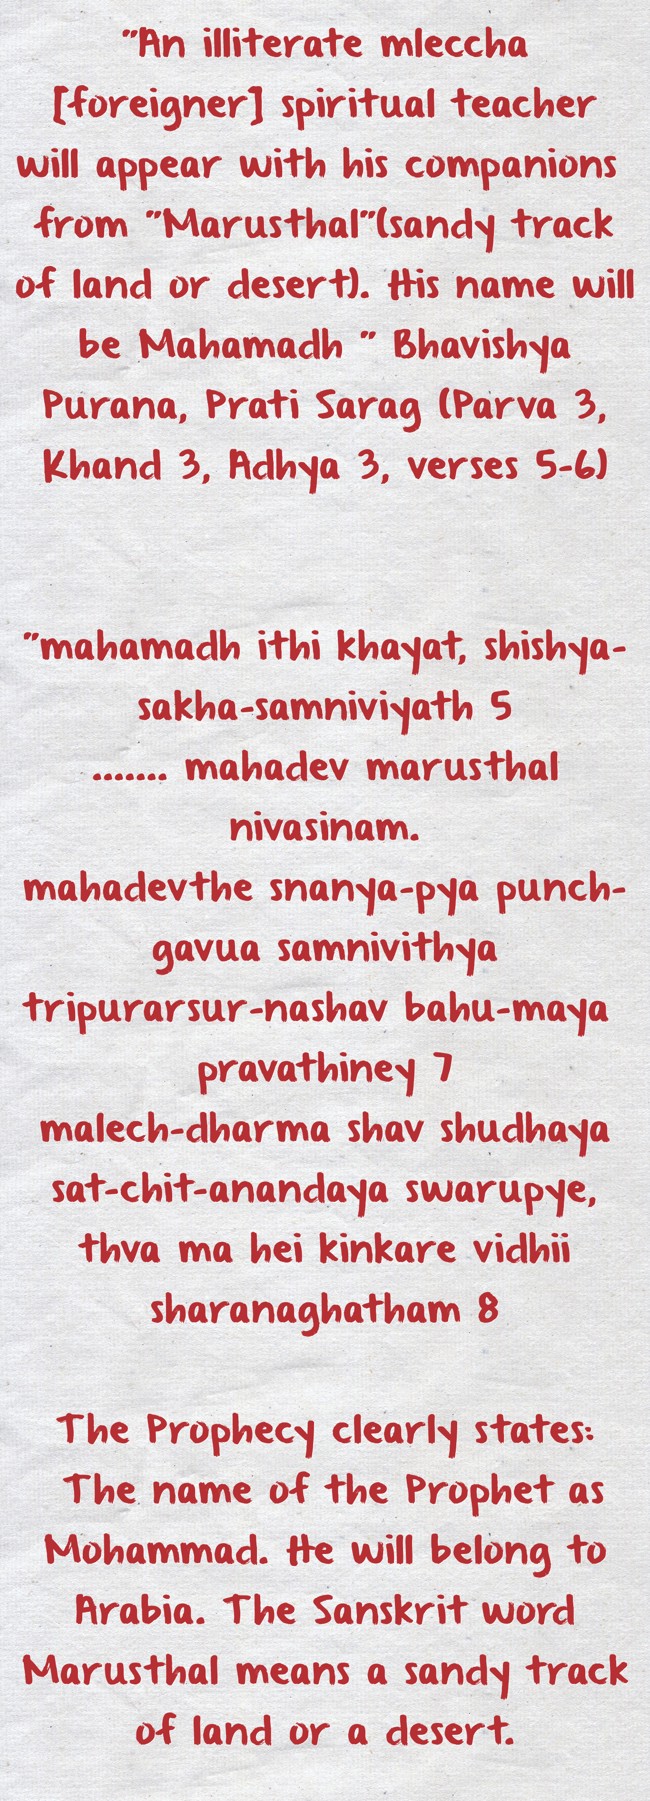 "An illiterate mleccha
[foreigner] spiritual teacher
will appear with his companions
from "Marusthal"(sandy track
of land or desert). His name will
be Mahamadh " Bhavishya
Purana, Prati Sarag (Parva 3,
Khand 3, Adhya 3, verses 5-6)
"mahamadh ithi khayat, shishya-
sakha-samniviyath 5
....... mahadev marusthal
nivasinam.
mahadevthe snanya-pya punch-
gavua samnivithya
tripurarsur-nashav bahu-maya
pravathiney 7
malech-dharma shav shudhaya
sat-chit-anandaya swarupye,
thva ma hei kinkare vidhii
sharanaghatham 8
The Prophecy clearly states:
The name of the Prophet as
Mohammad. He will belong to
Arabia. The Sanskrit word
Marusthal means a sandy track
of land or a desert.